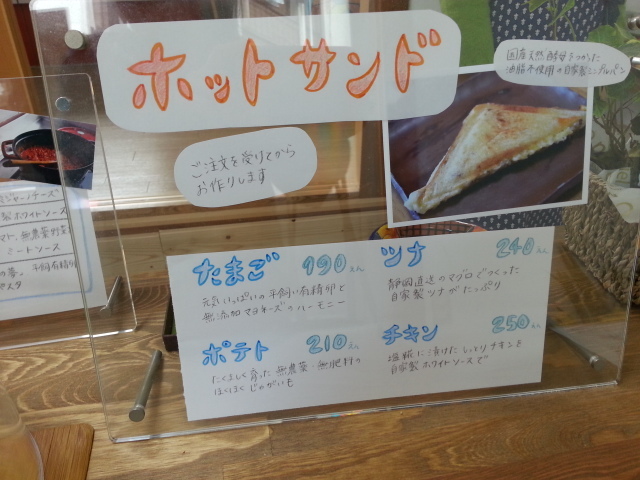 ホットサンド
国産天然酵母をつかった
油脂不使用の自家製シンプルパン
ご注文を受けてから
お作りします
たまご 190えん
元気いっぱいの平飼い有精卵と
無添加マヨネーズのハーモニー
ツナ 240えん
静岡直送のマグロでつくった
自家製ツナがたっぷり
ポテト 210えん
たくましく育った無農薬・無肥料の
ほくほくじゃがいも
チキン 250えん
塩糀に漬けたしっとりチキンを
自家製ホワイトソースで
ホワイトソース
無農薬野菜
ミートソース
平飼有精卵